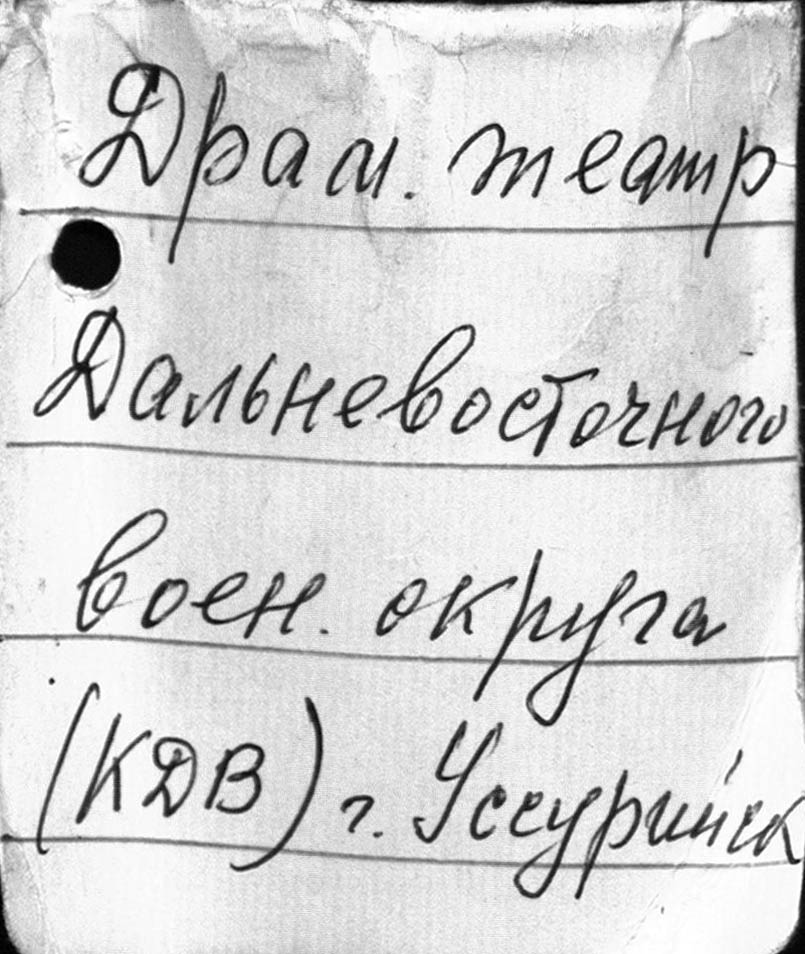 Драм. театр
Дальневосточного
воен. округа
(КДВ) г. Уссурийск